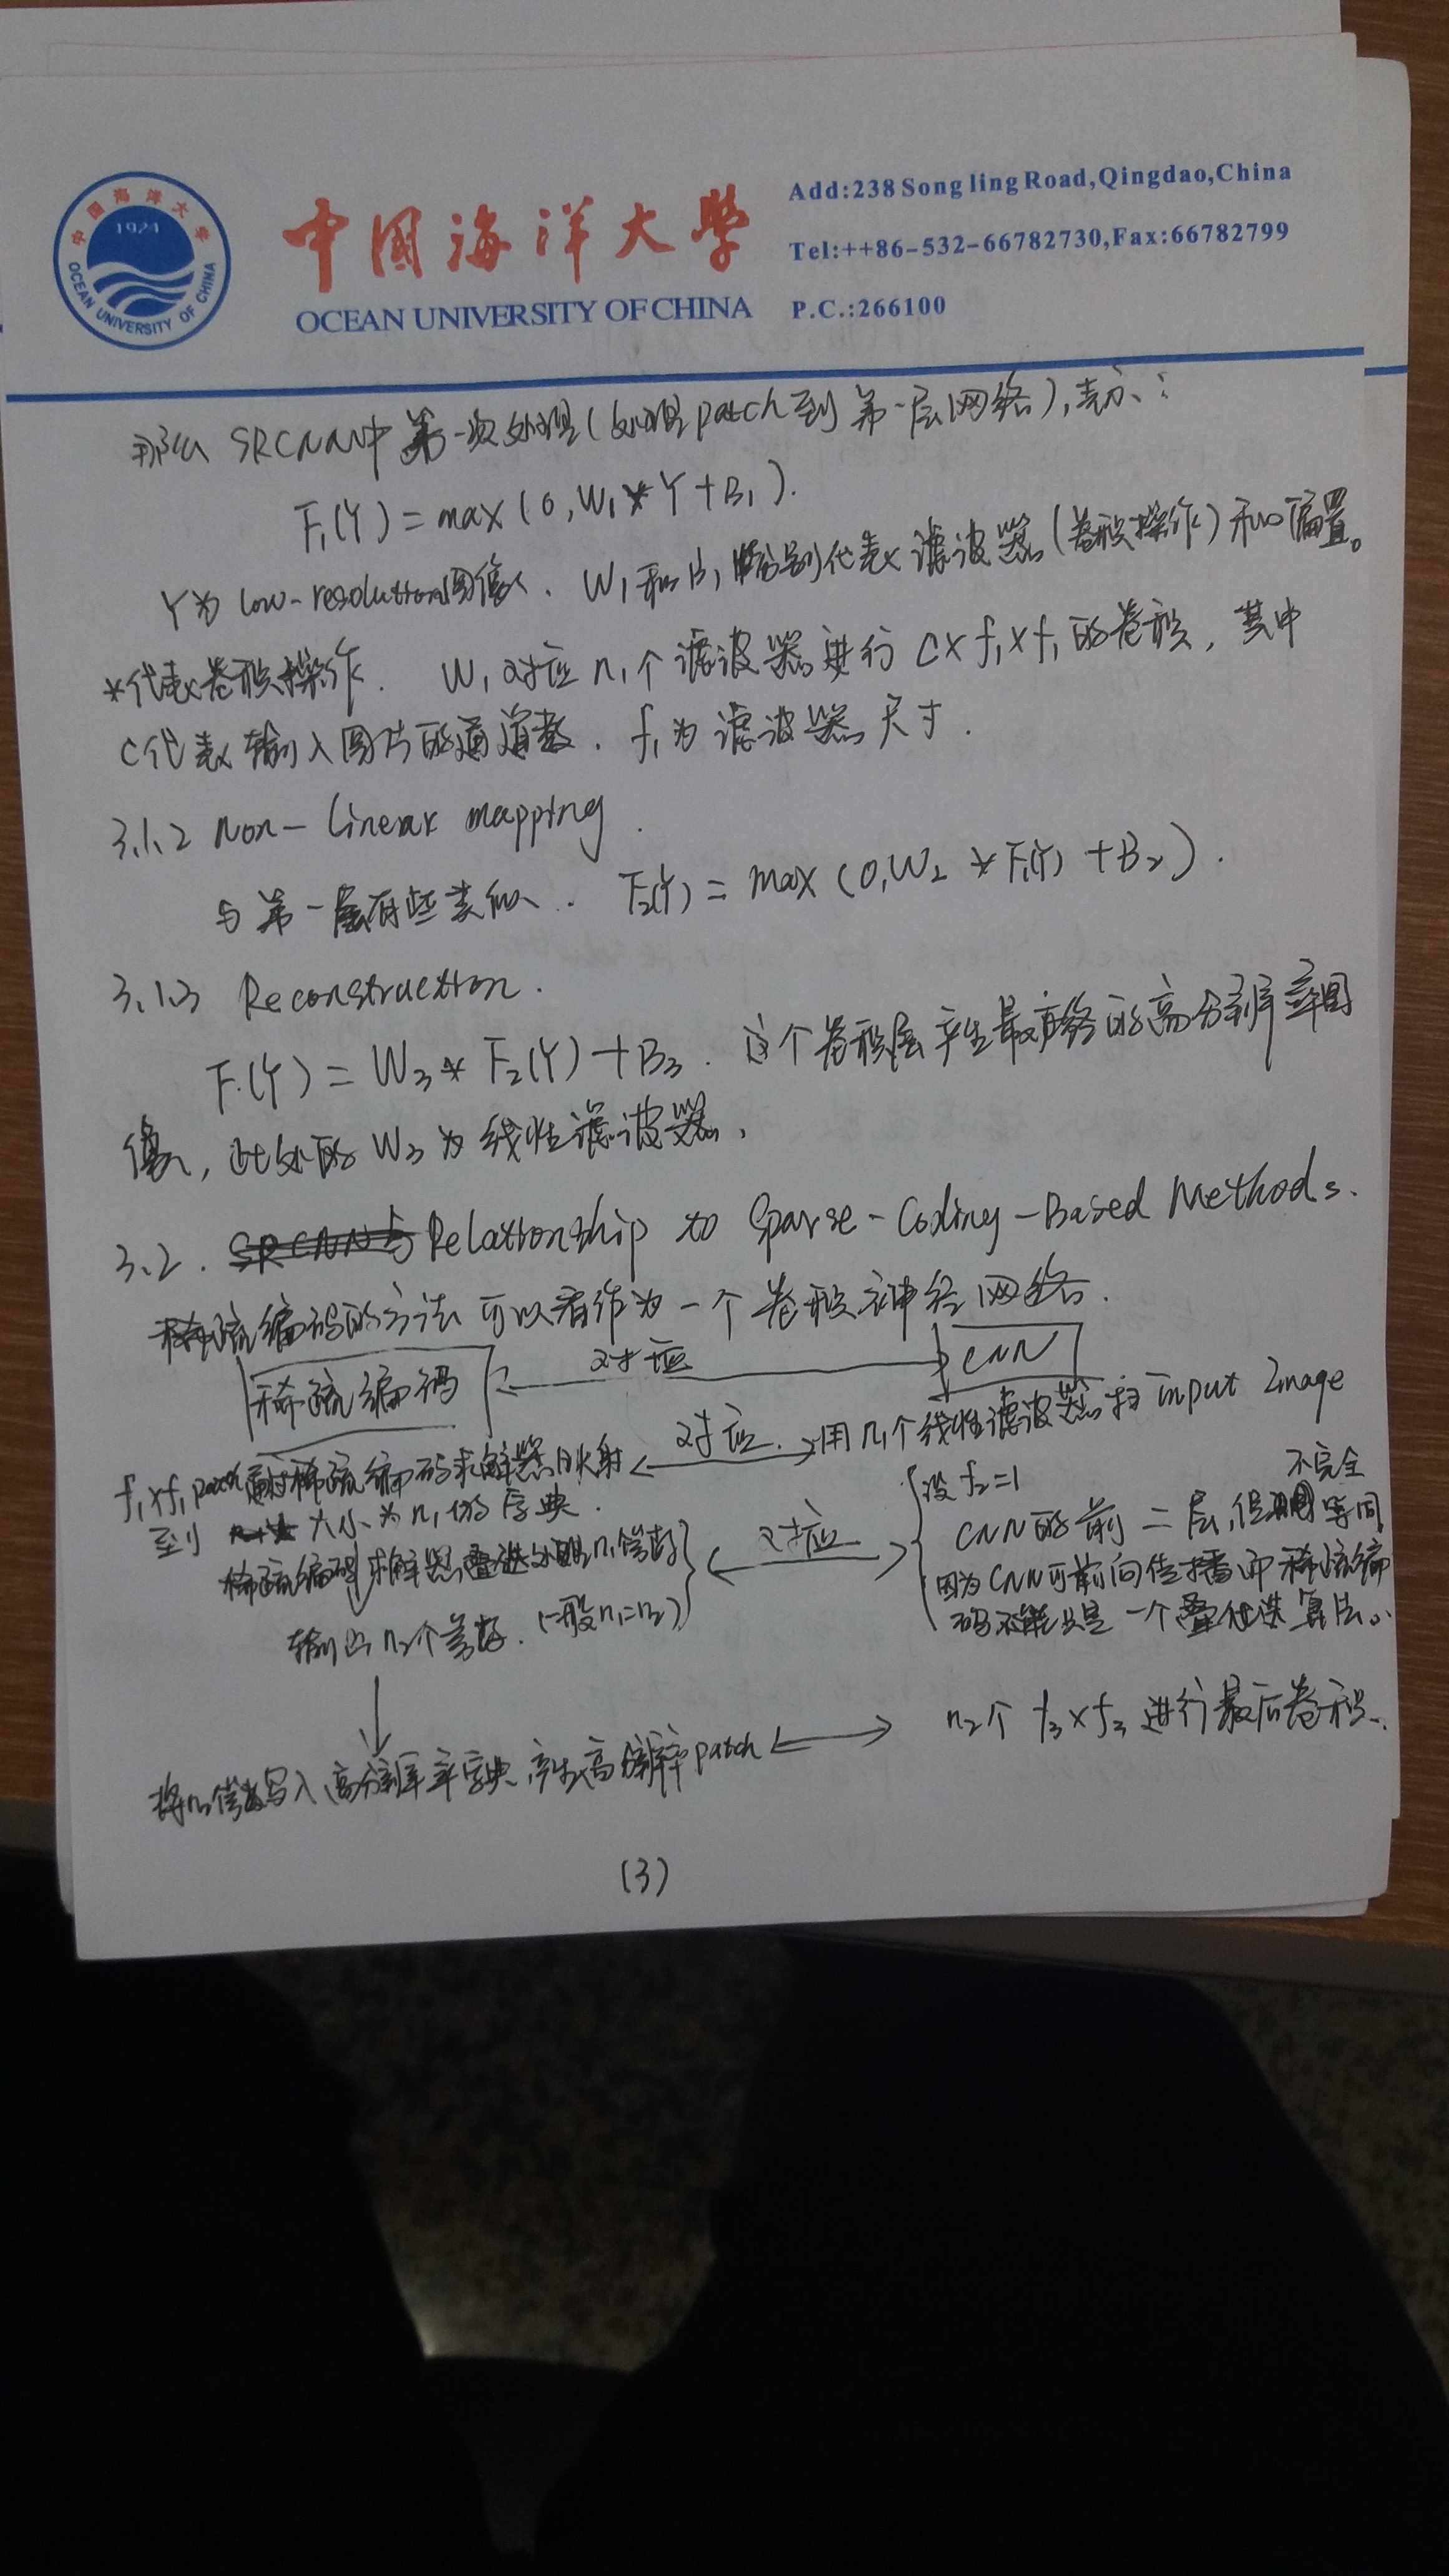 中国海洋大学
1924
OCEAN UNIVERSITY OF CHINA
中國海洋大學
OCEAN UNIVERSITY OF CHINA
Add:238 Song ling Road,Qingdao,China
Tel:++86-532-66782730,Fax:66782799
P.C.:266100
那么 SRCNN中第一次处理(处理patch到第一层网络),表示:
F₁(Y) = max (0, W₁ * Y + B₁).
Y为 low-resolution图像. W₁和B₁分别代表滤波器(卷积操作)和偏置。
*代表卷积操作. W₁对应n₁个滤波器进行 C×f₁×f₁的卷积, 其中
C代表输入图片的通道数. f₁为滤波器尺寸.
3.1.2 Non-linear mapping.
与第一层有些类似. F₂(Y) = max (0, W₂ * F₁(Y) + B₂).
3.1.3 Reconstruction.
F(Y) = W₃ * F₂(Y) + B₃. 这个卷积层产生最终的高分辨率图
像, 此处的 W₃ 为线性滤波器.
3.2. SRCNN与 Relationship to Sparse-Coding-Based Methods.
稀疏编码的方法可以看作为一个卷积神经网络.
稀疏编码 对应 CNN
f₁×f₁ patch 稀疏编码求解器映射 对应. 用n₁个线性滤波器扫 input Image
到 大小为n₁的字典.
稀疏编码求解器 处理n₁ 系数
输出n₂个系数. (一般n₁=n₂)
对应
设 f₂=1
CNN的前二层, 但不完全等同
因为CNN可前向传播而稀疏编
码不能只是一个迭代算法.
将n₂系数写入高分辨率字典, 产生高分辨率patch
n₂个 f₃×f₃ 进行最后卷积.
(3)